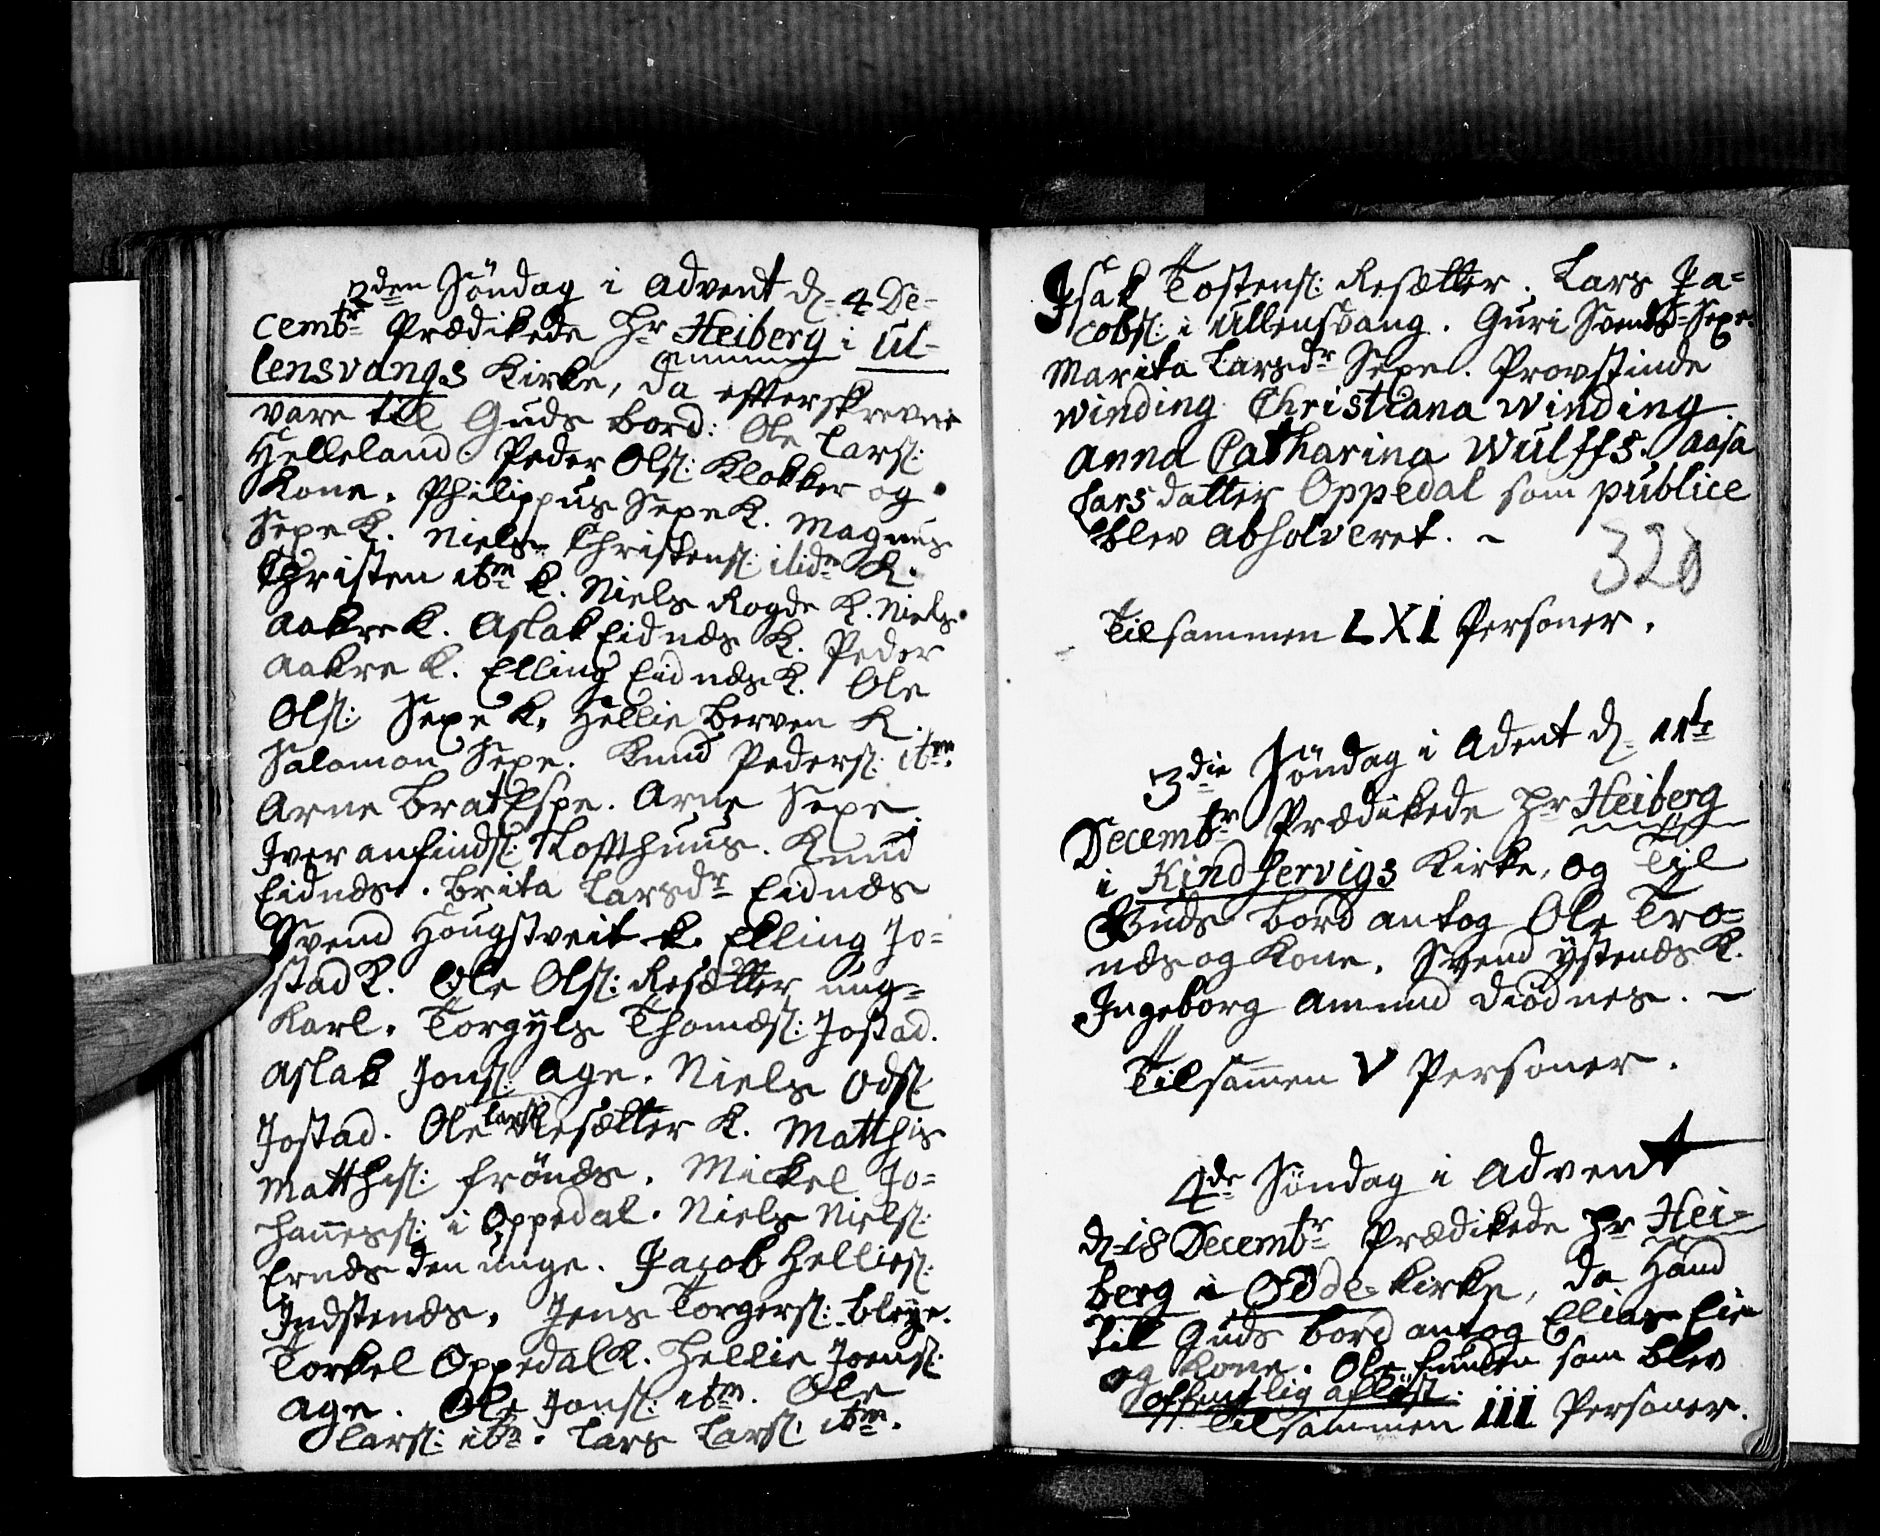 2den Söndag i Advent d. 4 De-
cembr Prædikede Hr Heiberg i Ul-
lensvangs Kirke, da efterskrevne
vare till Guds bord: Ole Lars:
Helleland. Peder Ols: Klokker og
Kone. Philippus Sexe K. Magnus
Sexe K. Niels Christens: ibidm K.
Christen itm K. Niels Rogde K. Niels
Aakre K. Aslak Eidnæs K. Peder
Aakre K. Elling Eidnæs K. Ole
Ols: Sexe K. Hellie Berven K.
Salomon Sexe. Knud Peders: itm.
Arne Bratespe. Arne Sexe.
Iver anfinds: Tofthuus. Knud
Eidnæs. Brita Larsdr Eidnæs
Svend Hougstveit K. Elling Jo-
stad K. Ole Ols: Resætter ung-
Karl. Torgÿls Thomæs: Jostad.
Aslak Jons: Age. Niels Ods:
Jostad. Ole Lars: Resætter K. Matthis
Matthis: frönæs. Mickel Jo-
hañess: i Oppedal. Niels Niels:
Ernæs den unge. Jacob Hellies:
Indstenæs. Jens Torgers: Bleÿe.
Torkel Oppedal K. Hellie Joens:
Age. Ole Jons: itm. Ole
Lars: itm. Lars Lars: itm.
Isak Tostens: Resætter. Lars Ja-
cobs: i Ullensvang. Guri Svendsd Sexe.
Marita Larsdr Sexe. Provstinde
Winding Christiana Winding.
Anna Catharina Wulffs. Aasa
Larsdatter Oppedal som publice
blev Absolveret. -
320
Tilsammen LXI Personer.
3die Söndag i Adent d. 11te
Decembr Prædikede Hr Heiberg
i Kindservigs Kirke, og Til
Guds bord antog Ole Tro-
næs og Kone. Svend ystenæs K.
Ingeborg Amund Diödnes. -
Tilsam̄en V Personer.
4de Söndag i Advent
d. 18 Decembr Prædikede Hr Hei-
berg i Odde Kirke, da Hand
til Guds bord antog Elias Eie
og Kone. Ole som blev
offentlig aflöst.
Tilsammen III Personer.